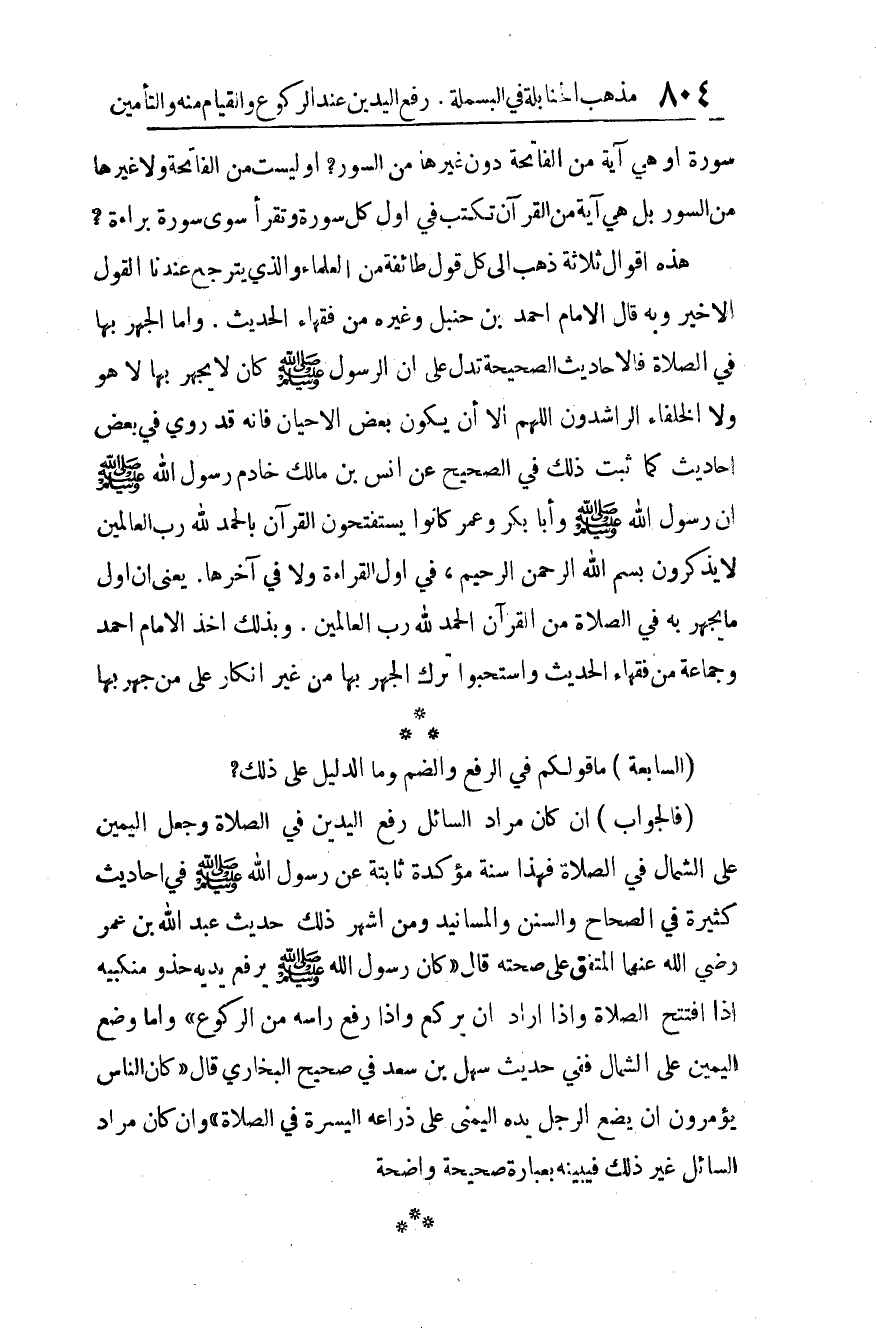 ٨٠٤ مذهب الحنابلة في البسملة . رفع اليدين عند الركوع والقيام منه والتأمين
سورة او هي آية من الفاتحة دون غيرها من السور? او ليست من الفاتحة ولا غيرها
من السور بل هي آية من القرآن تكتب في اول كل سورة وتقرأ سوى سورة براءة ?
هذه اقوال ثلاثة ذهب الى كل قول طائفة من العلماء والذي يترجح عندنا القول
الاخير وبه قال الامام احمد بن حنبل وغيره من فقهاء الحديث . واما الجهر بها
في الصلاة فالاحاديث الصحيحة تدل على ان الرسول ﷺ كان لا يجهر بها لا هو
ولا الخلفاء الراشدون اللهم الا أن يكون بعض الاحيان فانه قد روي في بعض
احاديث كما ثبت ذلك في الصحيح عن انس بن مالك خادم رسول الله ﷺ
ان رسول الله ﷺ وأبا بكر وعمر كانوا يستفتحون القرآن بالحمد لله رب العالمين
لا يذكرون بسم الله الرحمن الرحيم ، في اول القراءة ولا في آخرها. يعنى ان اول
ما يجهر به في الصلاة من القرآن الحمد لله رب العالمين . وبذلك اخذ الامام احمد
وجماعة من فقهاء الحديث واستحبوا ترك الجهر بها من غير انكار على من جهر بها
*
* *
(السابعة) ما قولكم في الرفع والضم وما الدليل على ذلك?
(فالجواب) ان كان مراد السائل رفع اليدين في الصلاة وجعل اليمين
على الشمال في الصلاة فهذا سنة مؤكدة ثابتة عن رسول الله ﷺ في احاديث
كثيرة في الصحاح والسنن والمسانيد ومن اشهر ذلك حديث عبد الله بن عمر
رضي الله عنهما المتفق على صحته قال «كان رسول الله ﷺ يرفع يديه حذو منكبيه
اذا افتتح الصلاة واذا اراد ان يركع واذا رفع راسه من الركوع» واما وضع
اليمين على الشمال ففي حديث سهل بن سعد في صحيح البخاري قال «كان الناس
يؤمرون ان يضع الرجل يده اليمنى على ذراعه اليسرة في الصلاة» وان كان مراد
السائل غير ذلك فيبينه بعبارة صحيحة واضحة
***